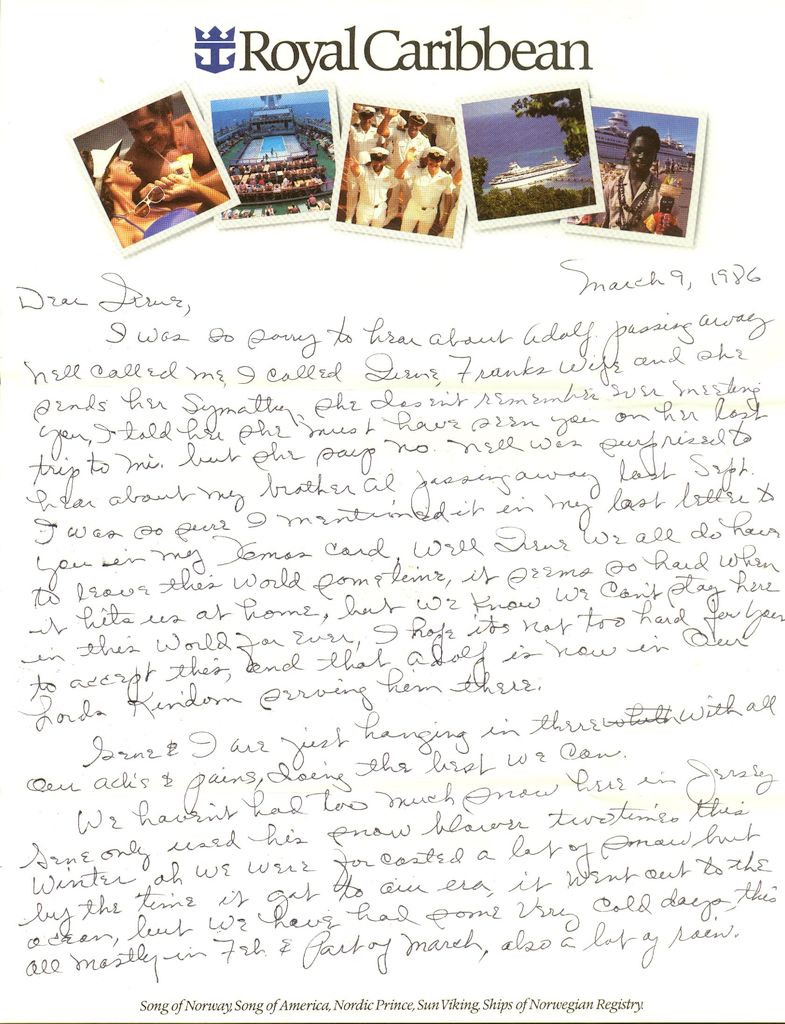 Royal Caribbean
March 9, 1986
Dear Irene,
I was so sorry to hear about Adolf passing away
Nell called me, I called Irene, Franks wife and she
sends her Symathy, she doesent remember ever meeting
you, I told her she must have seen you on her last
trip to Mi. but she says no. Nell was surprised to
hear about my brother Al passing away last Sept.
I was so sure I mentioned it in my last letter to
you in my Xmas card, Well Irene we all do have
to leave this world sometime, it seems so hard when
it hits us at home, but we know we can't stay here
in this world for ever, I hope its not too hard for you
to accept this, and that Adolf is now in Our
Lords Kindom serving him there.
Gene & I are just hanging in there with all
our achs & pains, doing the best we can.
We haven't had too much snow here in Jersey
Gene only used his snow blower two times this
winter oh we were forcasted a lot of snow but
by the time it got to our era, it went out to the
ocean, but we have had some very cold days, this
all mostly in Feb. & Part of March, also a lot of rain.
Song of Norway, Song of America, Nordic Prince, Sun Viking, Ships of Norwegian Registry.